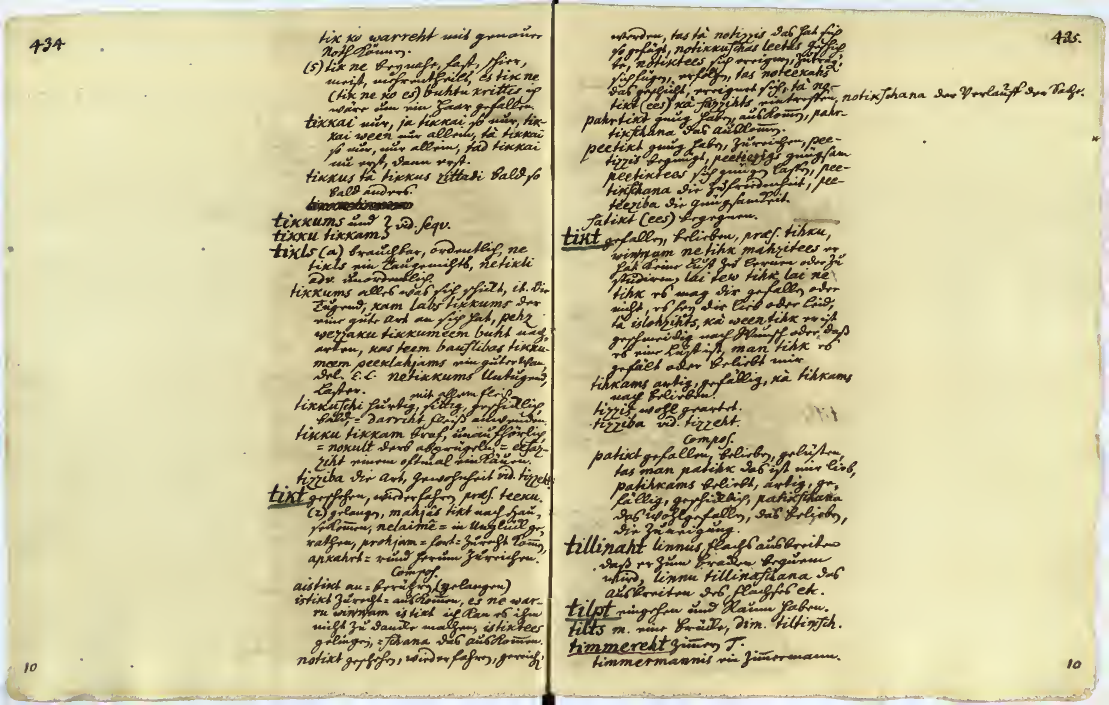 434
tik ko warreht mit genauer
Noth können.
(5) tik ne beynahe, fast, schier,
meist, mehrentheils, es tik ne
(tik ne ko es) buhtu krittes ich
wäre um ein Haar gefallen
tikkai nur, ja tikkai so nur, tik-
kai ween nur allein, tà tikkai
so nur, nur allein, tad tikkai
nu erst, dann erst.
tikkus tà tikkus zittadi bald so
bald anders.
tikkums und } vid. seqv.
tikku tikkam
tikls (a) brauchbar, ordentlich, ne
tikls ein Taugenichts, netikli
adv. unordentlich
tikkums alles was sich schikt, it. die
Tugend, kam labs tikkums der
eine gute Art an sich hat, pehz
wezzaku tikkumeem buht nach
arten, kas teem bauslibas tikku-
meem peeklahjams ein guter Wan-
del. E.L. netikkums Untugend,
Laster.
mit allem Fleiß
tikkuschi hurtig, sittig, geschiklich
bald, = darriht Fleiß anwenden
tikku tikkam brav, unaufhörlich
= nokult derb abprügeln, =
ziht einem oftmal einkäuen.
tizziba die Art, Gewohnheit vid. tizzeht
tikt geschehen, wiederfahren, præs. teeku.
(2) gelangen, mahjâs tikt nach Hau-
se kommen, nelaimê = in Unglück ge-
rathen, prohjam = fort = zurecht komen,
apkahrt = rund herum zureichen.
Compos.
aistikt an = berühren (gelangen)
istikt zurecht = auskommen, es ne war-
ru winnam istikt ich kan es ihm
nicht zu danke machen, istiktees
gelingen, = schana das auskommen.
notikt geschehen, wiederfahren, gereich-
10
435.
werden, tas tà notizzis das hat sich
so gefügt, notikkuschas leetas geschich-
te, notiktees sich ereignen, zutragen,
sich fügen, erfolgen, tas noteekahs
das geschicht, ereignet sich, tà no-
tikt (ees) kà sazzihts eintreffen, notikschana der Verlauff der Sache.
pahrtikt gnug haben, auskomen, pahr-
tikschana das Auskommen.
peetikt gnug haben, zureichen, pee-
tizzis begnügt, peetizzigs gnügsam
peetiktees sich gnügen lassen, pee-
tikschana die Zufriedenheit, pee-
teeziba die gnügsamkeit.
satikt (ees) begegnen.
tikt gefallen, belieben, præs. tihku,
winnam netihk mahzitees er
hat keine Lust zu lernen oder zu
studiren, lai tew tihk lai ne
tihk es mag dir gefallen oder
nicht, es sey dir lieb oder leid,
tà islohzihts, kà ween tihk er ist
geschmeidig nach Wunsch oder daß
es eine Lust ist, man tihk es
gefält oder beliebt mir
tihkams artig, gefällig, kà tihkams
nach belieben.
tizzis wohl geartet.
tizziba vid. tizzeht.
Compos.
patikt gefallen, belieben, gelüsten,
tas man patihk das ist mir lieb,
patihkams beliebt, artig, ge-
fällig, geschiklich, patikschana
das wohlgefallen, das belieben,
die Zuneigung.
tillinaht linnus, flachs ausbreiten
daß er zum brachen bequem
wird, linnu tillinaschana das
ausbreiten des flachses etc.
tilpt eingehen und Raum haben.
tilts m. eine Brücke, dim. tiltinsch.
timmereht zimmern T.
timmermannis ein Zimmermann.
10